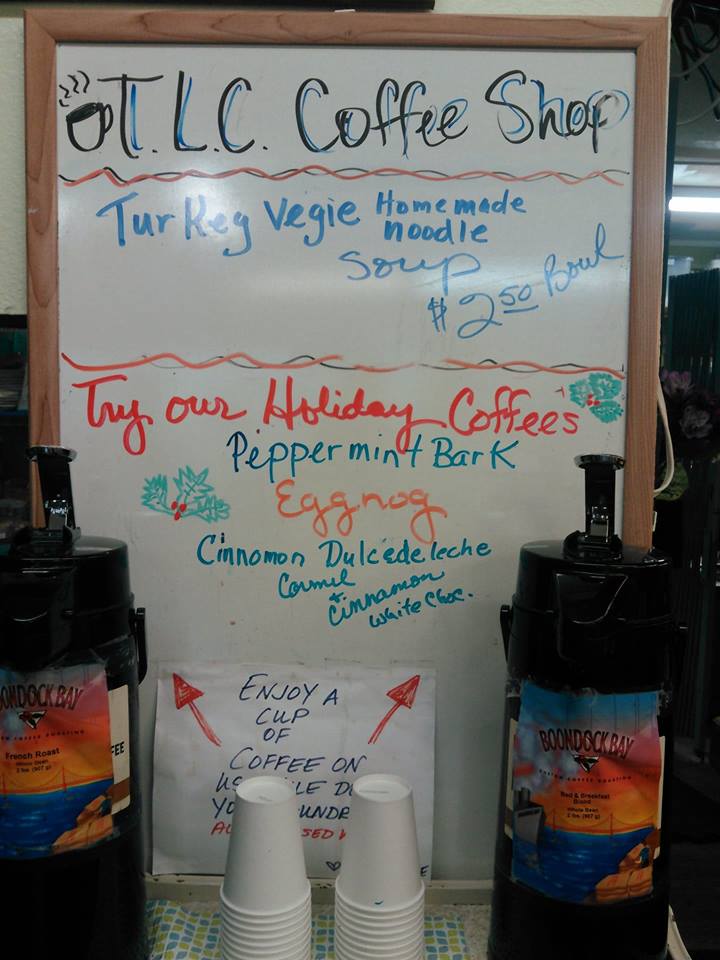 T.L.C. Coffee Shop
Turkey Vegie Homemade
noodle
Soup
$2.50 Bowl
Try our Holiday Coffees
Peppermint Bark
Eggnog
Cinnomon Dulcedeleche
Carmel
&
Cinnamon
White Choc.
ENJOY A
CUP
OF
COFFEE ON
BOONDOCK BAY
French Roast
Whole Bean
2 lbs. (907 g)
BOONDOCK BAY
CUSTOM COFFEE ROASTING
Bed & Breakfast
Blend
Whole Bean
2 lbs. (907 g)